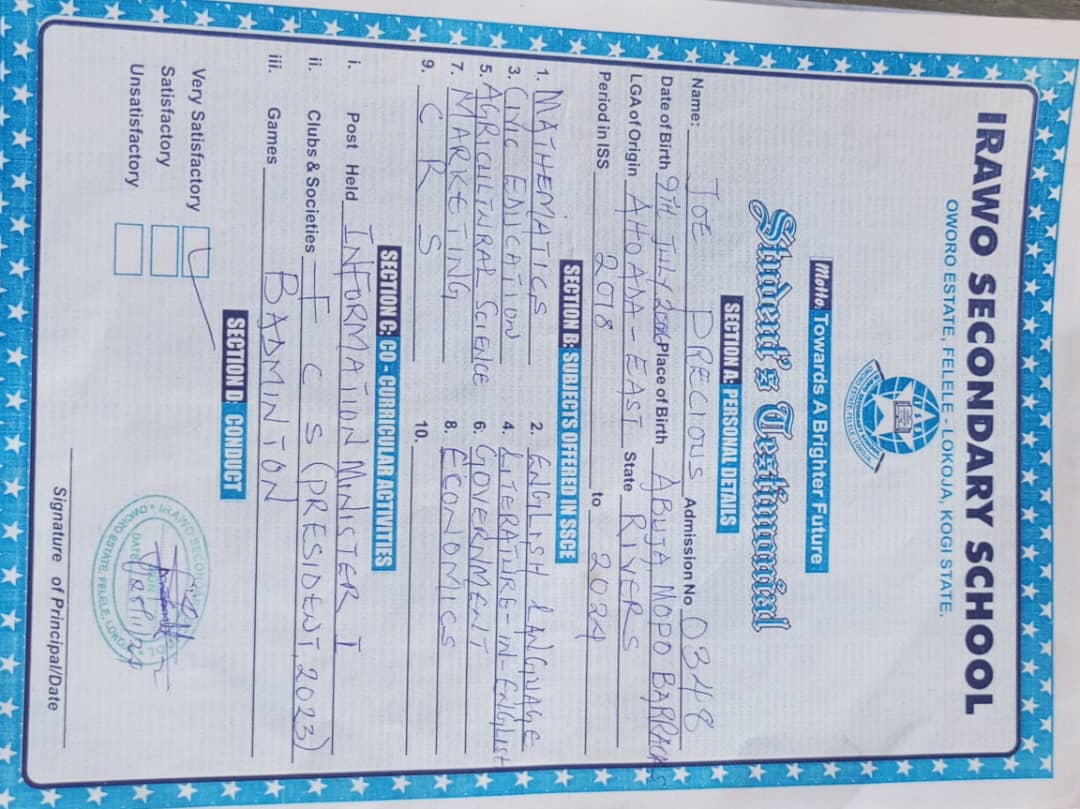 IRAWO SECONDARY SCHOOL
OWORO ESTATE, FELELE - LOKOJA, KOGI STATE.
Motto: Towards A Brighter Future
Student's Testimonial
SECTION A: PERSONAL DETAILS
Name: JOE PRECIOUS Admission No 0348
Date of Birth 9TH JULY Place of Birth ABUJA MOPO BARRACKS
LGA of Origin AHOADA - EAST State RIVERS
Period in ISS 2018 to 2024
SECTION B: SUBJECTS OFFERED IN SSCE
1. MATHEMATICS 2. ENGLISH LANGUAGE
3. CIVIC EDUCATION 4. LITERATURE-IN-ENGLISH
5. AGRICULTURAL SCIENCE 6. GOVERNMENT
7. MARKETING 8. ECONOMICS
9. C R S 10.
SECTION C: CO - CURRICULAR ACTIVITIES
i. Post Held INFORMATION MINISTER I
ii. Clubs & Societies F C S (PRESIDENT, 2023)
iii. Games BADMINTON
SECTION D CONDUCT
Very Satisfactory
Satisfactory
Unsatisfactory
IRAWO SECONDARY
DATE
OWORO ESTATE, FELELE, LOKOJA
Signature of Principal/Date